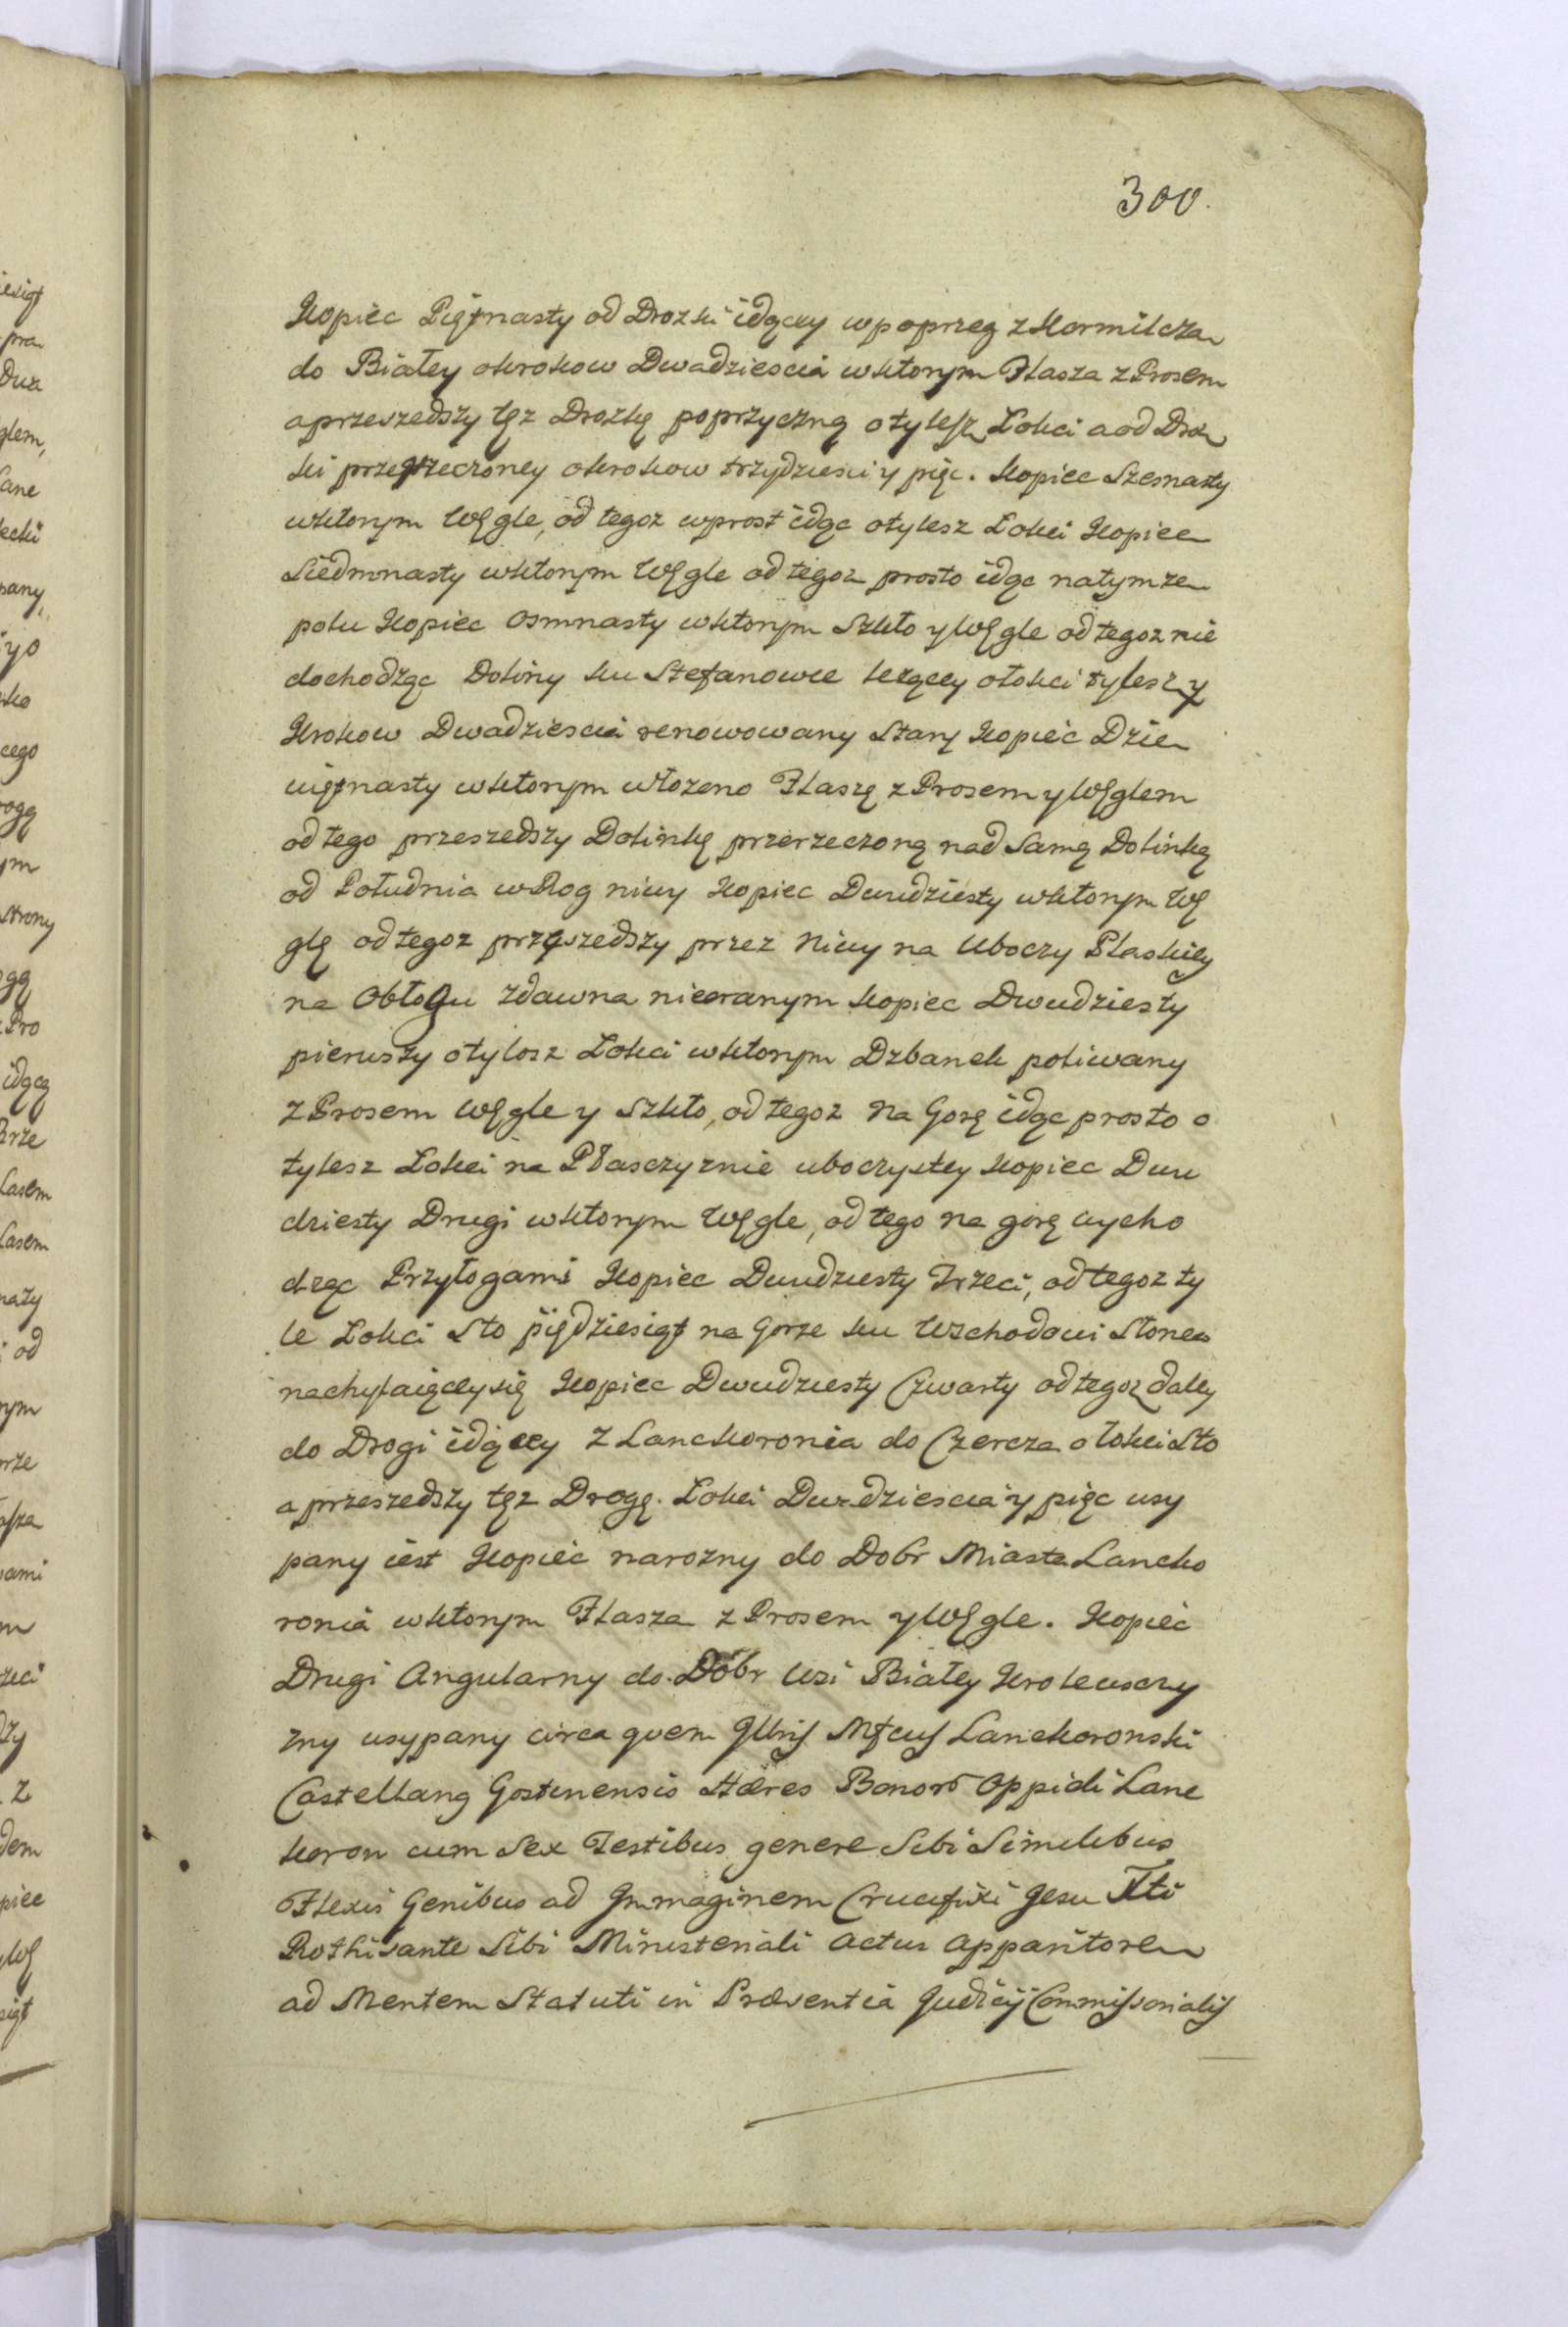 300.
Kopiec Piętnasty od Drozki idącey wpoprzeg z Karmilcza
do Białey okrokow Dwadziescia wktorym Flasza z Prosem
a przeszedszy tęz Drozkę poprzyczną otylesz Łokci a od Droz
ki przerzeczoney okrokow trzydziesci y pięc. Kopiec Szesnasty
wktorym Węgle, od tegoz wprost idąc otylesz Łokci Kopiec
Siedmnasty wktorym Węgle od tegoz prosto idąc natymze
polu Kopiec Osmnasty wktorym Szkło y Węgle od tegoz nie
dochodząc Doliny ku Stefanowce lezącey ołokci tylesz y
Krokow Dwadziescia renowowany Stary Kopiec Dzie
więtnasty wktorym włozono Flaszę z Prosem y Węglem
od tego przeszedszy Dolinkę przerzeczoną nad Samą Dolinką
od Południa w Rog niwy Kopiec Dwudziesty wktorym Wę
glę od tegoz przeszedszy przez Niwy na Uboczy Płaskiey
na Obłogu zdawna nieoranym Kopiec Dwudziesty
pierwszy otylosz Łokci wktorym Dzbanek poliwany
z Prosem Węgle y Szkło, od tegoz na Gorę idąc prosto o
tylesz Łokci na Płasczyznie uboczystey Kopiec Dwu
dziesty Drugi wktorym Węgle, od tego na gorę wycho
dząc Przyłogami Kopiec Dwudziesty Trzeci, od tegoz ty
le Łokci Sto piędziesiąt na Gorze ku Wschodowi Słonca
nachylaiącey się Kopiec Dwudziesty Czwarty od tegoz daley
do Drogi idącey z Lanckoronia do Czercza ołokci Sto
a przeszedszy tęz Drogę. Łokci Dwadziescia y pięc usy
pany iest Kopiec narozny do Dobr Miasta Lancko
ronia wktorym Flasza z Prosem y Węgle. Kopiec
Drugi Angularny do Dobr Wsi Białey Krolewsczy
zny usypany circa quem Jllris Mfcus Lanckoronski
Castellang Gostinensis Hæres Bonorō Oppidi Lanc
koron cum Sex Testibus genere Sibi Similibus
Flexis Genibus ad Jmmaginem Crucifixi Jesu Xti
Rothisante Sibi Ministeriali Actus Apparitore
ad Mentem Statuti in Præsentia Judicij Commissorialis